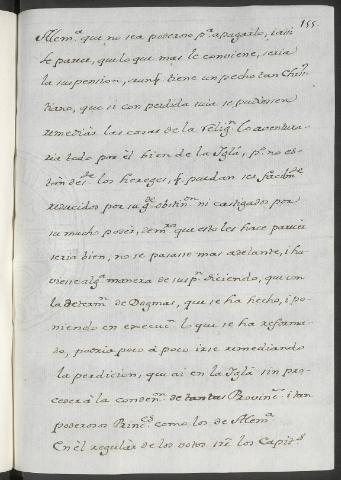 155.
Alem.ª que no sea poderoso p.ª apagarlo, i assi
le parece, que lo que mas le conviene, seria
la suspension, aunq̃ tiene un pecho tan Chris
tiano, que si con perdida suia se pudiessen
remediàr las cosas de la relig.n lo aventura
ria todo por èl bien de la Igl.ª, p.º no es
tàn los hereges, q̃ puedan ser facilm.te
reducidos por su g.de obstin.on ni castigados por
su mucho podèr, que esto les hace parecer
seria bien, no se pasasse mas adelante, i hu
viesse alg.ª manera de susp.n diciendo, que con
la determ.n de Dogmas, que se ha hecho, i po
niendo en execuc.n lo que se ha reforma
do, podria poco à poco irse remediando
la perdicion, que ai en la Igl.ª sin pro
ceder à la conden.n de tantas Provinc.s i tan
poderosos Princ.s como los de Alem.ª
En èl regulàr de los votos los Capit.s